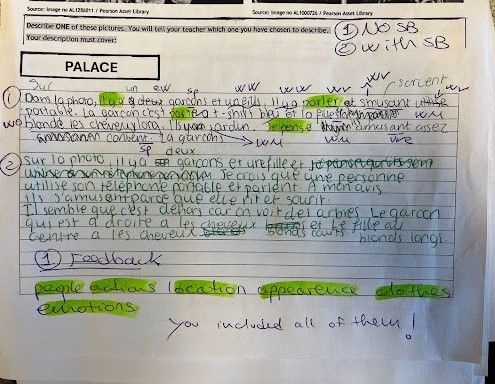 Source: Image no AL1286811 / Pearson Asset Library
Source: Image no AL1000726 / Pearson Asset Library
Describe ONE of these pictures. You will tell your teacher which one you have chosen to describe.
Your description must cover:
① No SB
② with SB
PALACE
Sur un ew sp ww ww ww wv servent
① Dans la photo, il y a deux garcons et un fils. Il y a parler et smusant
portable. La garcon c'est t-shirt bleu et la fille
blonde les cheveux long. Il y jardin. Je pense amusant assez
content. La garcons
ww
sp deux
② Sur la photo, il y a garcons et une fille et
Je crois que une personne
utilise son telephone portable et parlent. A mon avis
ils s'amusent parce que elle rit et sourit.
Il semble que c'est dehors car on voit des arbres. Le garcon
qui est a droite a les cheveux et Le fille au
centre a les cheveux blonds courts. blonds longs.
① Feedback
people actions location appearence clothes
emotions.
you included all of them!